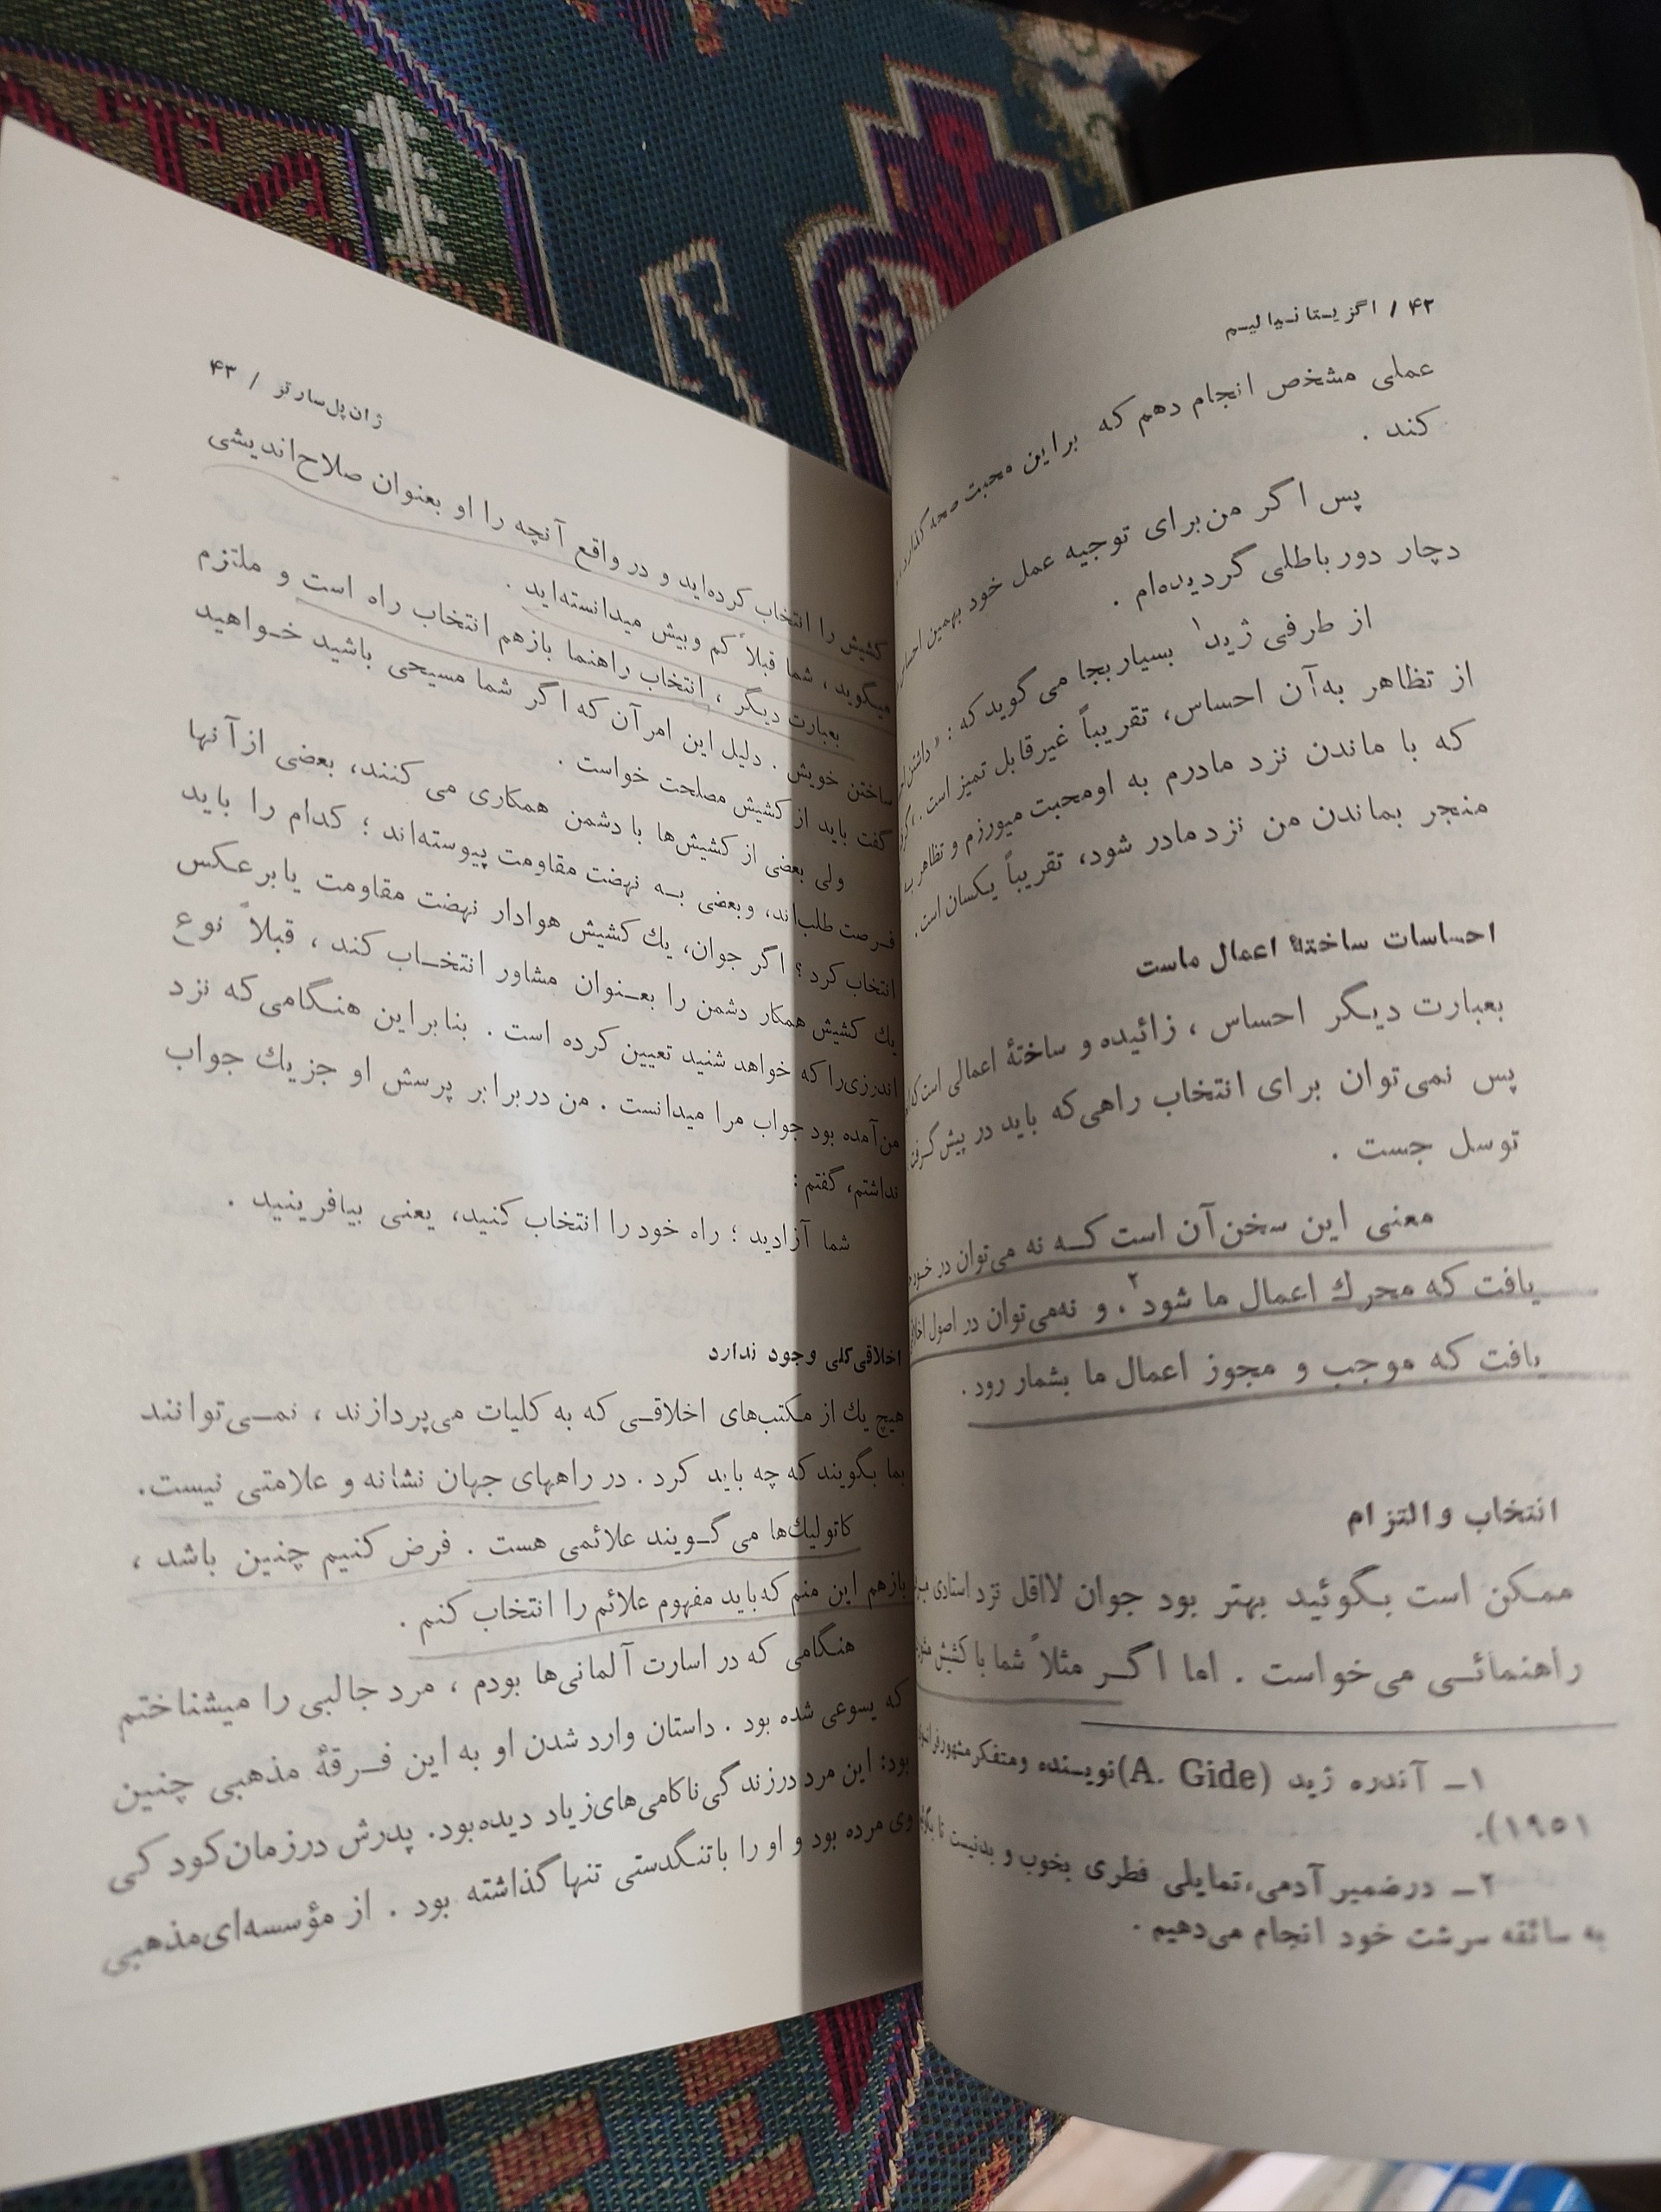 ۴۲ / اگزیستانسیالیسم
عملی مشخص انجام دهم که براین محبت صحه گذارد
کند .
پس اگر من برای توجیه عمل خود بهمین
دچار دور باطلی گردیده‌ام .
از طرفی ژید۱ بسیار بجا می گوید که : «داشتن
از تظاهر به‌آن احساس، تقریباً غیرقابل تمیز است .»
که با ماندن نزد مادرم به اومحبت میورزم و تظاهر
منجر بماندن من نزد مادر شود، تقریباً یکسان است .
احساسات ساختهٔ اعمال ماست
بعبارت دیگر احساس ، زائیده و ساختهٔ اعمالی است که
پس نمی‌توان برای انتخاب راهی‌که باید در پیش گرفت
توسل جست .
معنی این سخن‌آن است کـه نه می‌توان در خود
یافت که محرك اعمال ما شود۲ . و نه‌می‌توان در اصول
یافت که موجب و مجوز اعمال ما بشمار رود .
انتخاب و التزام
ممکن است بگوئید بهتر بود جوان لااقل نزد استادی
راهنمائـی می‌خواست . اما اگـر مثلاً شما با کشیش
۱ـ آندره ژید (A. Gide) نویسنده و متفکر مشهور
۱۹۵۱).
۲ـ درضمیر آدمی، تمایلی فطری بخوب و بدنیست تا
به سائقه سرشت خود انجام می‌دهیم .
ژان پل سارتر / ۴۳
کشیش را انتخاب کرده‌اید و در واقع آنچه را او بعنوان صلاح‌اندیشی
میگوید ، شما قبلاً کم وبیش میدانسته‌اید .
بعبارت دیگر ، انتخاب راهنما بازهم انتخاب راه است و ملتزم
ساختن خویش . دلیل این امر آن که اگر شما مسیحی باشید خـواهید
گفت باید از کشیش مصلحت خواست .
ولی بعضی از کشیش‌ها با دشمن همکاری می کنند، بعضی از آنها
فـرصت طلب‌اند، وبعضی بـه نهضت مقاومت پیوسته‌اند ؛ کدام را باید
انتخاب کرد ؟ اگر جوان، یك کشیش هوادار نهضت مقاومت یا برعکس
یك کشیش همکار دشمن را بعـنوان مشاور انتخـاب کند ، قبلاً نوع
اندرزی‌را که خواهد شنید تعیین کرده است . بنابراین هنگامی‌که نزد
من‌آمده بود جواب مرا میدانست . من در برابر پرسش او جز یك جواب
نداشتم، گفتم :
شما آزادید ؛ راه خود را انتخاب کنید، یعنی بیافرینید .
اخلاق‌کلی وجود ندارد
هیچ یك از مکتب‌های اخلاقـی که به کلیات می‌پردازند ، نمـی‌توانند
بما بگویند که چه باید کرد . در راههای جهان نشانه و علامتی نیست.
کاتولیك‌ها می گـویند علائمی هست . فرض کنیم چنین باشد ،
بازهم این منم که‌باید مفهوم علائم را انتخاب کنم .
هنگامی که در اسارت آلمانی‌ها بودم ، مرد جالبی را میشناختم
که یسوعی شده بود . داستان وارد شدن او به این فـرقهٔ مذهبی چنین
بود: این مرد درزندگی‌ناکامی‌های‌زیاد دیده‌بود. پدرش درزمان‌کودکی
وی مرده بود و او را باتنگدستی تنها گذاشته بود . از مؤسسه‌ای‌مذهبی